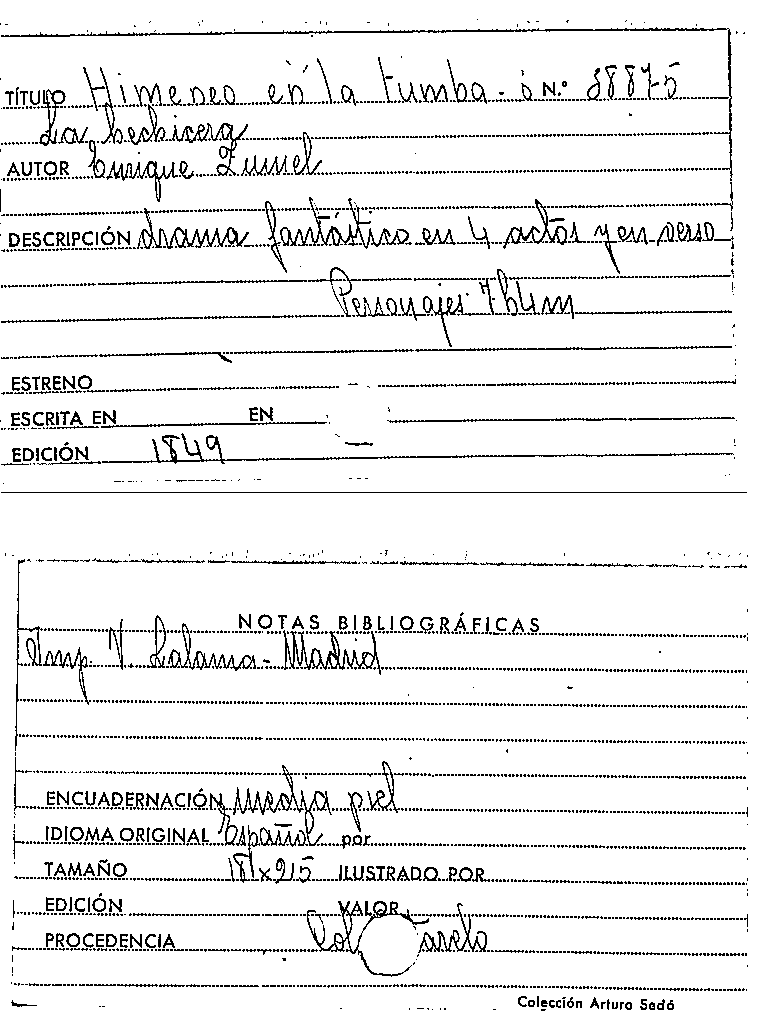 TÍTULO Himeneo en la tumba - ó N.º 38875
La hechicera
AUTOR Enrique Zumel
DESCRIPCIÓN drama fantástico en 4 actos y en verso
Personajes 7h4m
ESTRENO
ESCRITA EN EN
EDICIÓN 1849
NOTAS BIBLIOGRÁFICAS
Imp. V. Lalama - Madrid
ENCUADERNACIÓN media piel
IDIOMA ORIGINAL Español por
TAMAÑO ILUSTRADO POR
EDICIÓN VALOR
PROCEDENCIA Col
Colección Arturo Sedó